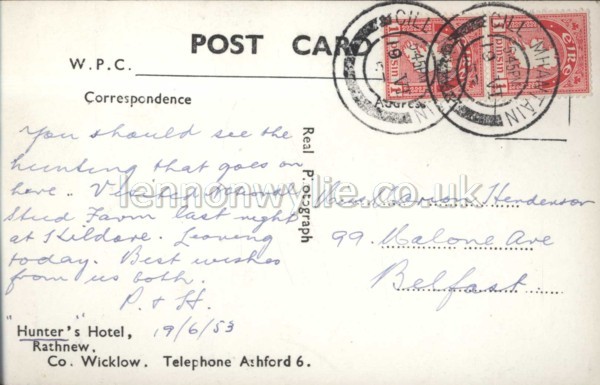 POST CARD
W.P.C.
Correspondence
Address
You should see the
hunting that goes on
here. National
Stud Farm last night
at Kildare. Leaving
today. Best wishes
from us both.
P. & H.
19/6/53
Real Photograph
Henderson
99. Malone Ave
Belfast.
"Hunter's" Hotel,
Rathnew,
Co. Wicklow. Telephone Ashford 6.
CILL MHANTAIN
19 VI
EIRE
CILL MHANTAIN
19 VI
lennonwylie.co.uk